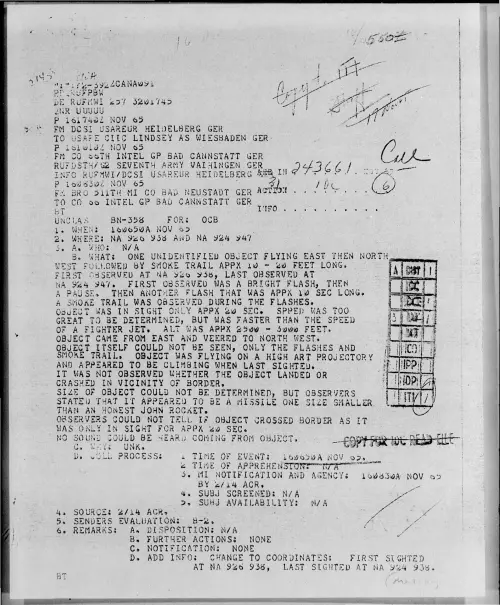 DE RUFMWI 257 3201745
ZNR UUUUU
P 161740Z NOV 65
FM DCSI USAREUR HEIDELBERG GER
TO USAFE CIIC LINDSEY AS WIESBADEN GER
P 161010Z NOV 65
FM CO 66TH INTEL GP BAD CANNSTATT GER
RUFDSTH/G2 SEVENTH ARMY VAIHINGEN GER
INFO RUFMWI/DCSI USAREUR HEIDELBERG GER IN 243661
P 160830Z NOV 65
ACTION
FM BRO 511TH MI CO BAD NEUSTADT GER
TO CO 66 INTEL GP BAD CANNSTATT GER
6
BT
INFO
UNCLAS BN-358 FOR: OCB
1. WHEN: 160650A NOV 65
2. WHERE: NA 926 938 AND NA 924 947
3. A. WHO: N/A
B. WHAT: ONE UNIDENTIFIED OBJECT FLYING EAST THEN NORTH
WEST FOLLOWED BY SMOKE TRAIL APPX 10 - 20 FEET LONG.
FIRST OBSERVED AT NA 926 938, LAST OBSERVED AT
NA 924 947. FIRST OBSERVED WAS A BRIGHT FLASH, THEN
A PAUSE. THEN ANOTHER FLASH THAT WAS APPX 10 SEC LONG.
A SMOKE TRAIL WAS OBSERVED DURING THE FLASHES.
OBJECT WAS IN SIGHT ONLY APPX 20 SEC. SPPED WAS TOO
GREAT TO BE DETERMINED, BUT WAS FASTER THAN THE SPEED
OF A FIGHTER JET. ALT WAS APPX 2500 - 3000 FEET.
OBJECT CAME FROM EAST AND VEERED TO NORTH WEST.
OBJECT ITSELF COULD NOT BE SEEN, ONLY THE FLASHES AND
SMOKE TRAIL. OBJECT WAS FLYING ON A HIGH ART PROJECTORY
AND APPEARED TO BE CLIMBING WHEN LAST SIGHTED.
IT WAS NOT OBSERVED WHETHER THE OBJECT LANDED OR
CRASHED IN VICINITY OF BORDER.
SIZE OF OBJECT COULD NOT BE DETERMINED, BUT OBSERVERS
STATED THAT IT APPEARED TO BE A MISSILE ONE SIZE SMALLER
THAN AN HONEST JOHN ROCKET.
OBSERVERS COULD NOT TELL IF OBJECT CROSSED BORDER AS IT
WAS ONLY IN SIGHT FOR APPX 20 SEC.
NO SOUND COULD BE HEARD COMING FROM OBJECT.
COPY FOR IDC READ FILE
C. WHY: UNK.
D. COLL PROCESS: 1 TIME OF EVENT: 160650A NOV 65.
2 TIME OF APPREHENSION: N/A
3. MI NOTIFICATION AND AGENCY: 160830A NOV 65
BY 2/14 ACR.
4. SUBJ SCREENED: N/A
5. SUBJ AVAILABILITY: N/A
4. SOURCE: 2/14 ACR.
5. SENDERS EVALUATION: B-2.
6. REMARKS: A. DISPOSITION: N/A
B. FURTHER ACTIONS: NONE
C. NOTIFICATION: NONE
D. ADD INFO: CHANGE TO COORDINATES: FIRST SIGHTED
AT NA 926 938, LAST SIGHTED AT NA 924 938.
BT